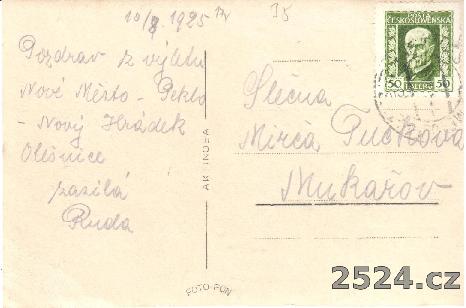 10/8 1925
35
Pozdrav z výletu
Nové Město - Peklo
- Nový Hrádek
Olešnice
zasílá
Ruda
AKINDRA
FOTO-FON
POŠTA
ČESKOSLOVENSKÁ
50 HALÉŘŮ 50
Slečna
Mirča Tučkova
Mukařov
2524.cz